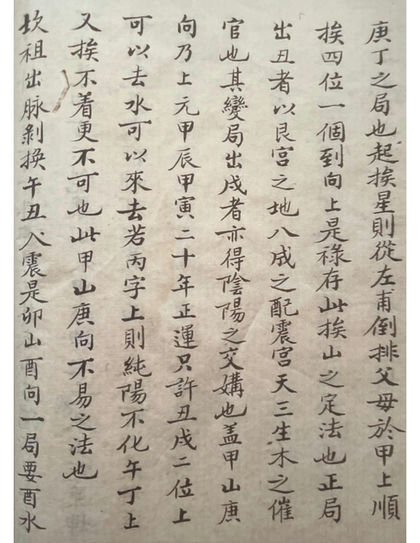 庚丁之局也起挨星則從左甫倒排父母於甲上順
挨四位一個到向上是祿存此挨山之定法也正局
出丑者以艮宮之地八成之配震宮天三生木之催
官也其變局出戌者亦得陰陽之交媾也盖甲山庚
向乃上元甲辰甲寅二十年正運只許丑戌二位上
可以去水可以來去若丙字上則純陽不化午丁上
又挨不着更不可也此甲山庚向不易之法也
坎祖出脉剝換午丑入震是卯山酉向一局要酉水